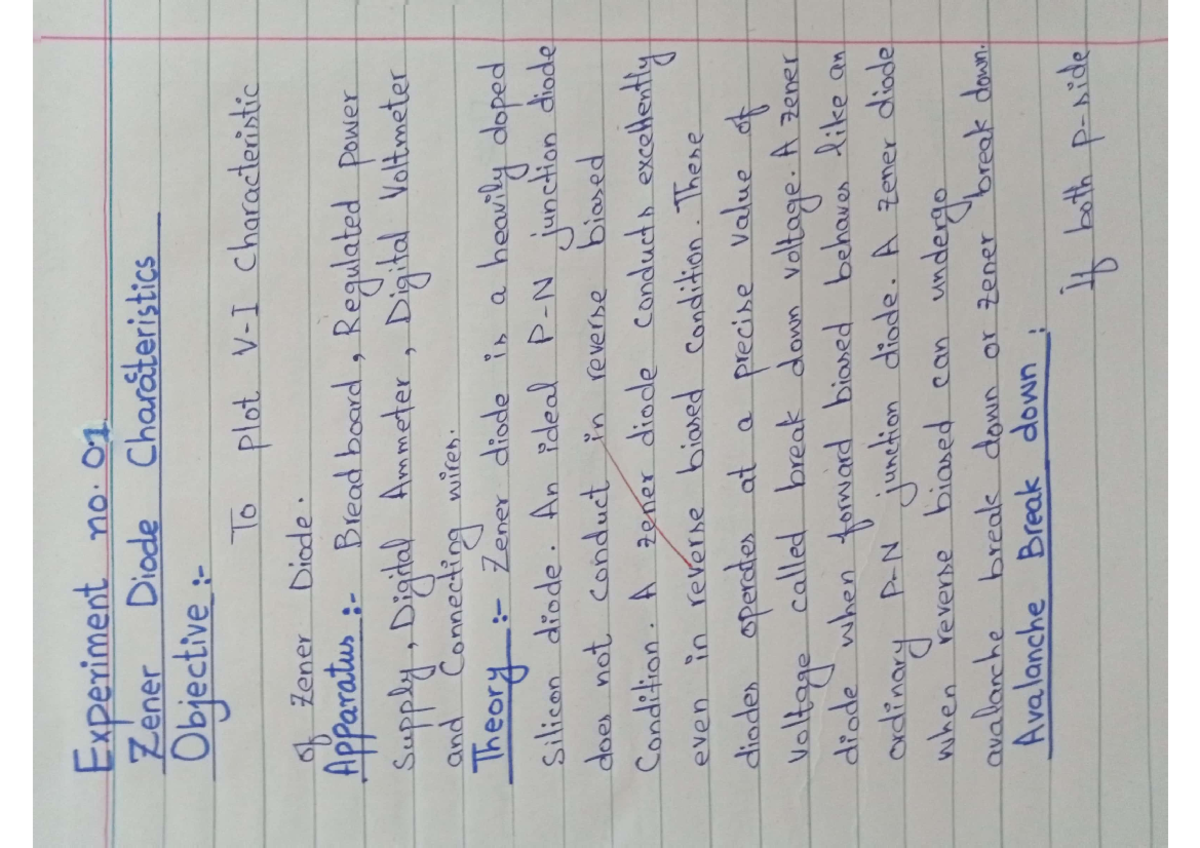 Experiment no. 01
Zener Diode Charateristics
Objective :-
To plot V-I Characteristic
of Zener Diode.
Apparatus :- Bread board, Regulated power
Supply, Digital Ammeter, Digital Voltmeter
and Connecting wires.
Theory :- Zener diode is a heavily doped
Silicon diode. An ideal P-N junction diode
does not conduct in reverse biased
Condition. A zener diode conducts excellently
even in reverse biased condition. These
diodes operates at a precise value of
Voltage called break down voltage. A zener
diode when forward biased behaves like an
ordinary P-N junction diode. A zener diode
when reverse biased can undergo
avalanche break down or zener break down.
Avalanche Break down :
If both p-side